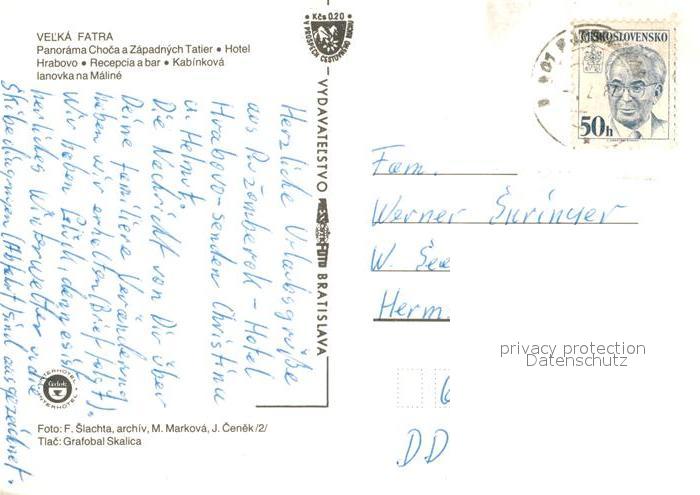 VEĽKÁ FATRA
Panoráma Choča a Západných Tatier • Hotel
Hrabovo • Recepcia a bar • Kabínková
lanovka na Máliné
Kčs 0.20
V PROSPECH CESTOVNÉHO RUCHU
VYDAVATEĽSTVO
BRATISLAVA
ČESKOSLOVENSKO
50h
Herzliche Urlaubsgrüße
aus Ružomberok – Hotel
Hrabovo – senden Christine
u. Helmut.
Die Nachricht von Dir über
Deine familiere Veränderung
haben wir erhalten (Brief folgt).
Wir haben Glück, denn es ist
herrliches Winterwetter u. die
Skibedingungen (Abfahrt) sind ausgezeichnet.
Fam.
Werner
W.
Herm.
6
DD
INTERHOTEL
Čedok
INTERHOTEL
Foto: F. Šlachta, archív, M. Marková, J. Čeněk /2/
Tlač: Grafobal Skalica
privacy protection
Datenschutz